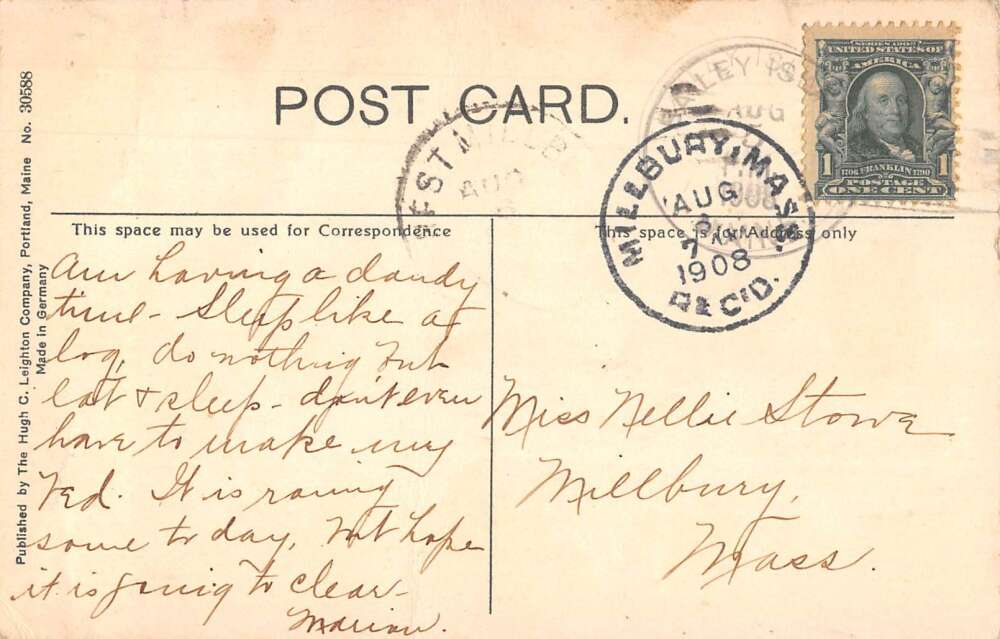 POST CARD.
SERIES 1902
UNITED STATES OF
AMERICA
1 1706 FRANKLIN 1790 1
POSTAGE
ONE CENT
AILEY IS
AUG
1908
EST MIL
AUG
MILLBURY, MASS.
AUG
7
1908
REC'D.
This space may be used for Correspondence
This space is for Address only
Am having a dandy
time - Sleep like a
log, do nothing but
eat & sleep - don't even
have to make my
bed. It is raining
some to day, but hope
it is going to clear -
Marion.
Miss Nellie Stowe
Millbury,
Mass.
Published by The Hugh C. Leighton Company, Portland, Maine No. 30588
Made in Germany